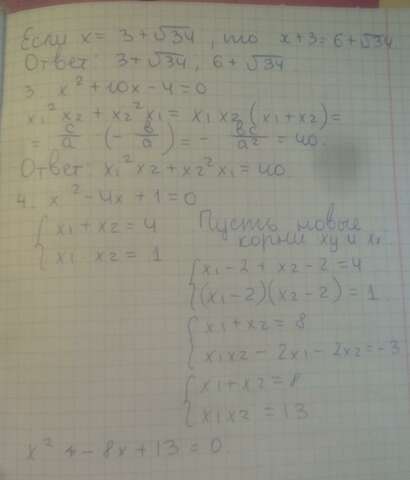 Если x = 3 + √34, то x + 3 = 6 + √34
Ответ: 3 + √34, 6 + √34.
3. x² + 10x - 4 = 0
x₁²x₂ + x₂²x₁ = x₁x₂(x₁ + x₂) =
= c/a (-b/a) = - bc/a² = 40.
Ответ: x₁²x₂ + x₂²x₁ = 40.
4. x² - 4x + 1 = 0
{ x₁ + x₂ = 4
x₁ x₂ = 1
Пусть новые
корни и
{ x₁ - 2 + x₂ - 2 = 4
(x₁ - 2)(x₂ - 2) = 1
{ x₁ + x₂ = 8
x₁x₂ - 2x₁ - 2x₂ = -3
{ x₁ + x₂ = 8
x₁x₂ = 13
x² - 8x + 13 = 0